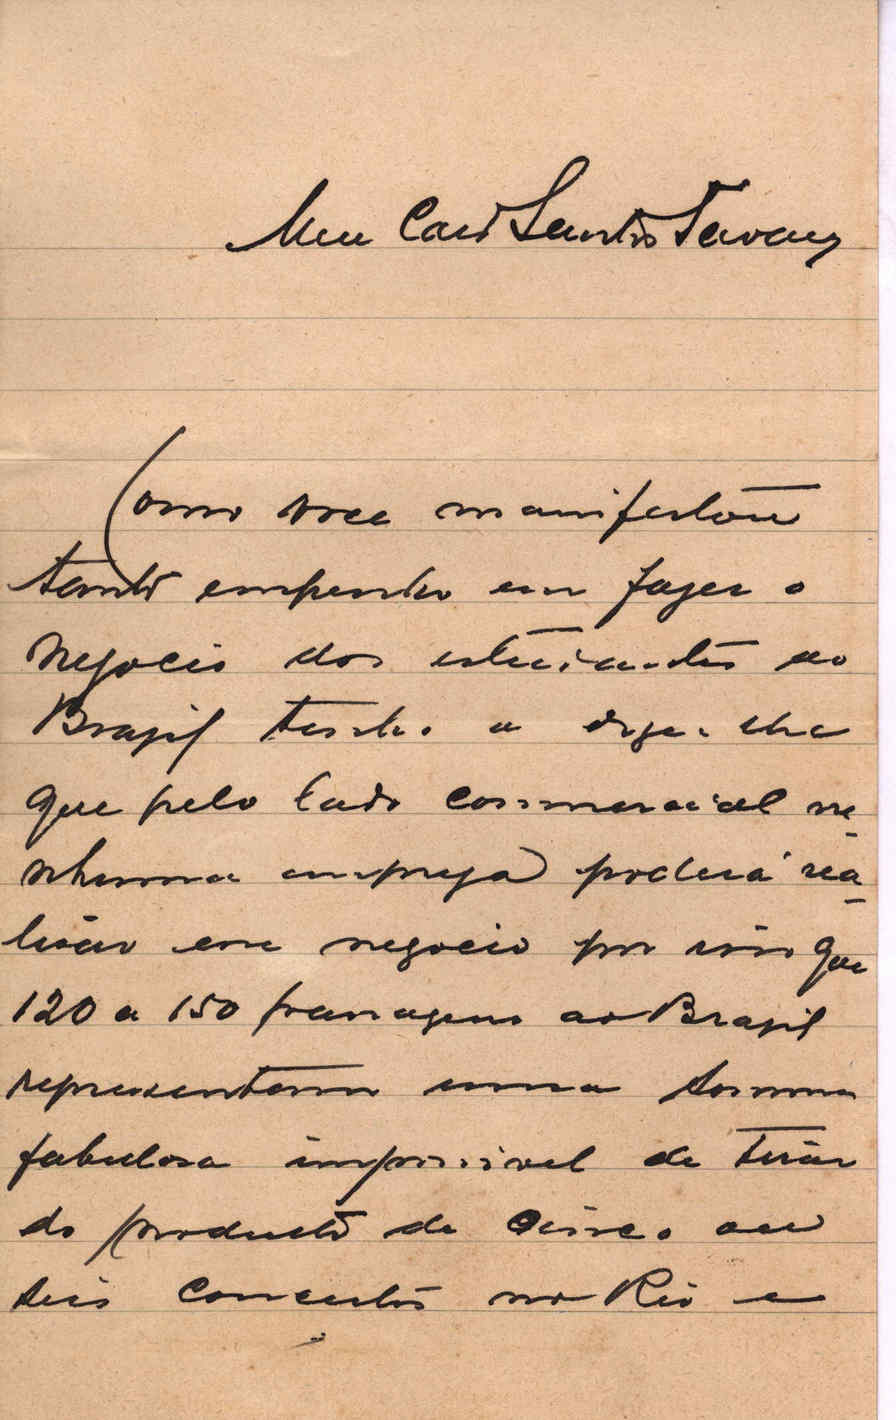 Meu Caro Santos Tavares
Como voce manifestou
tanto empenho em fazer o
negocio dos estudantes ao
Brazil tenho a dizer-lhe
que pelo lado commercial ne-
nhuma empreza poderá rea-
lisar esse negocio por isso que
120 a 150 passagens ao Brazil
representam uma somma
fabulosa impossivel de tirar
do producto de cinco ou
seis concertos no Rio e